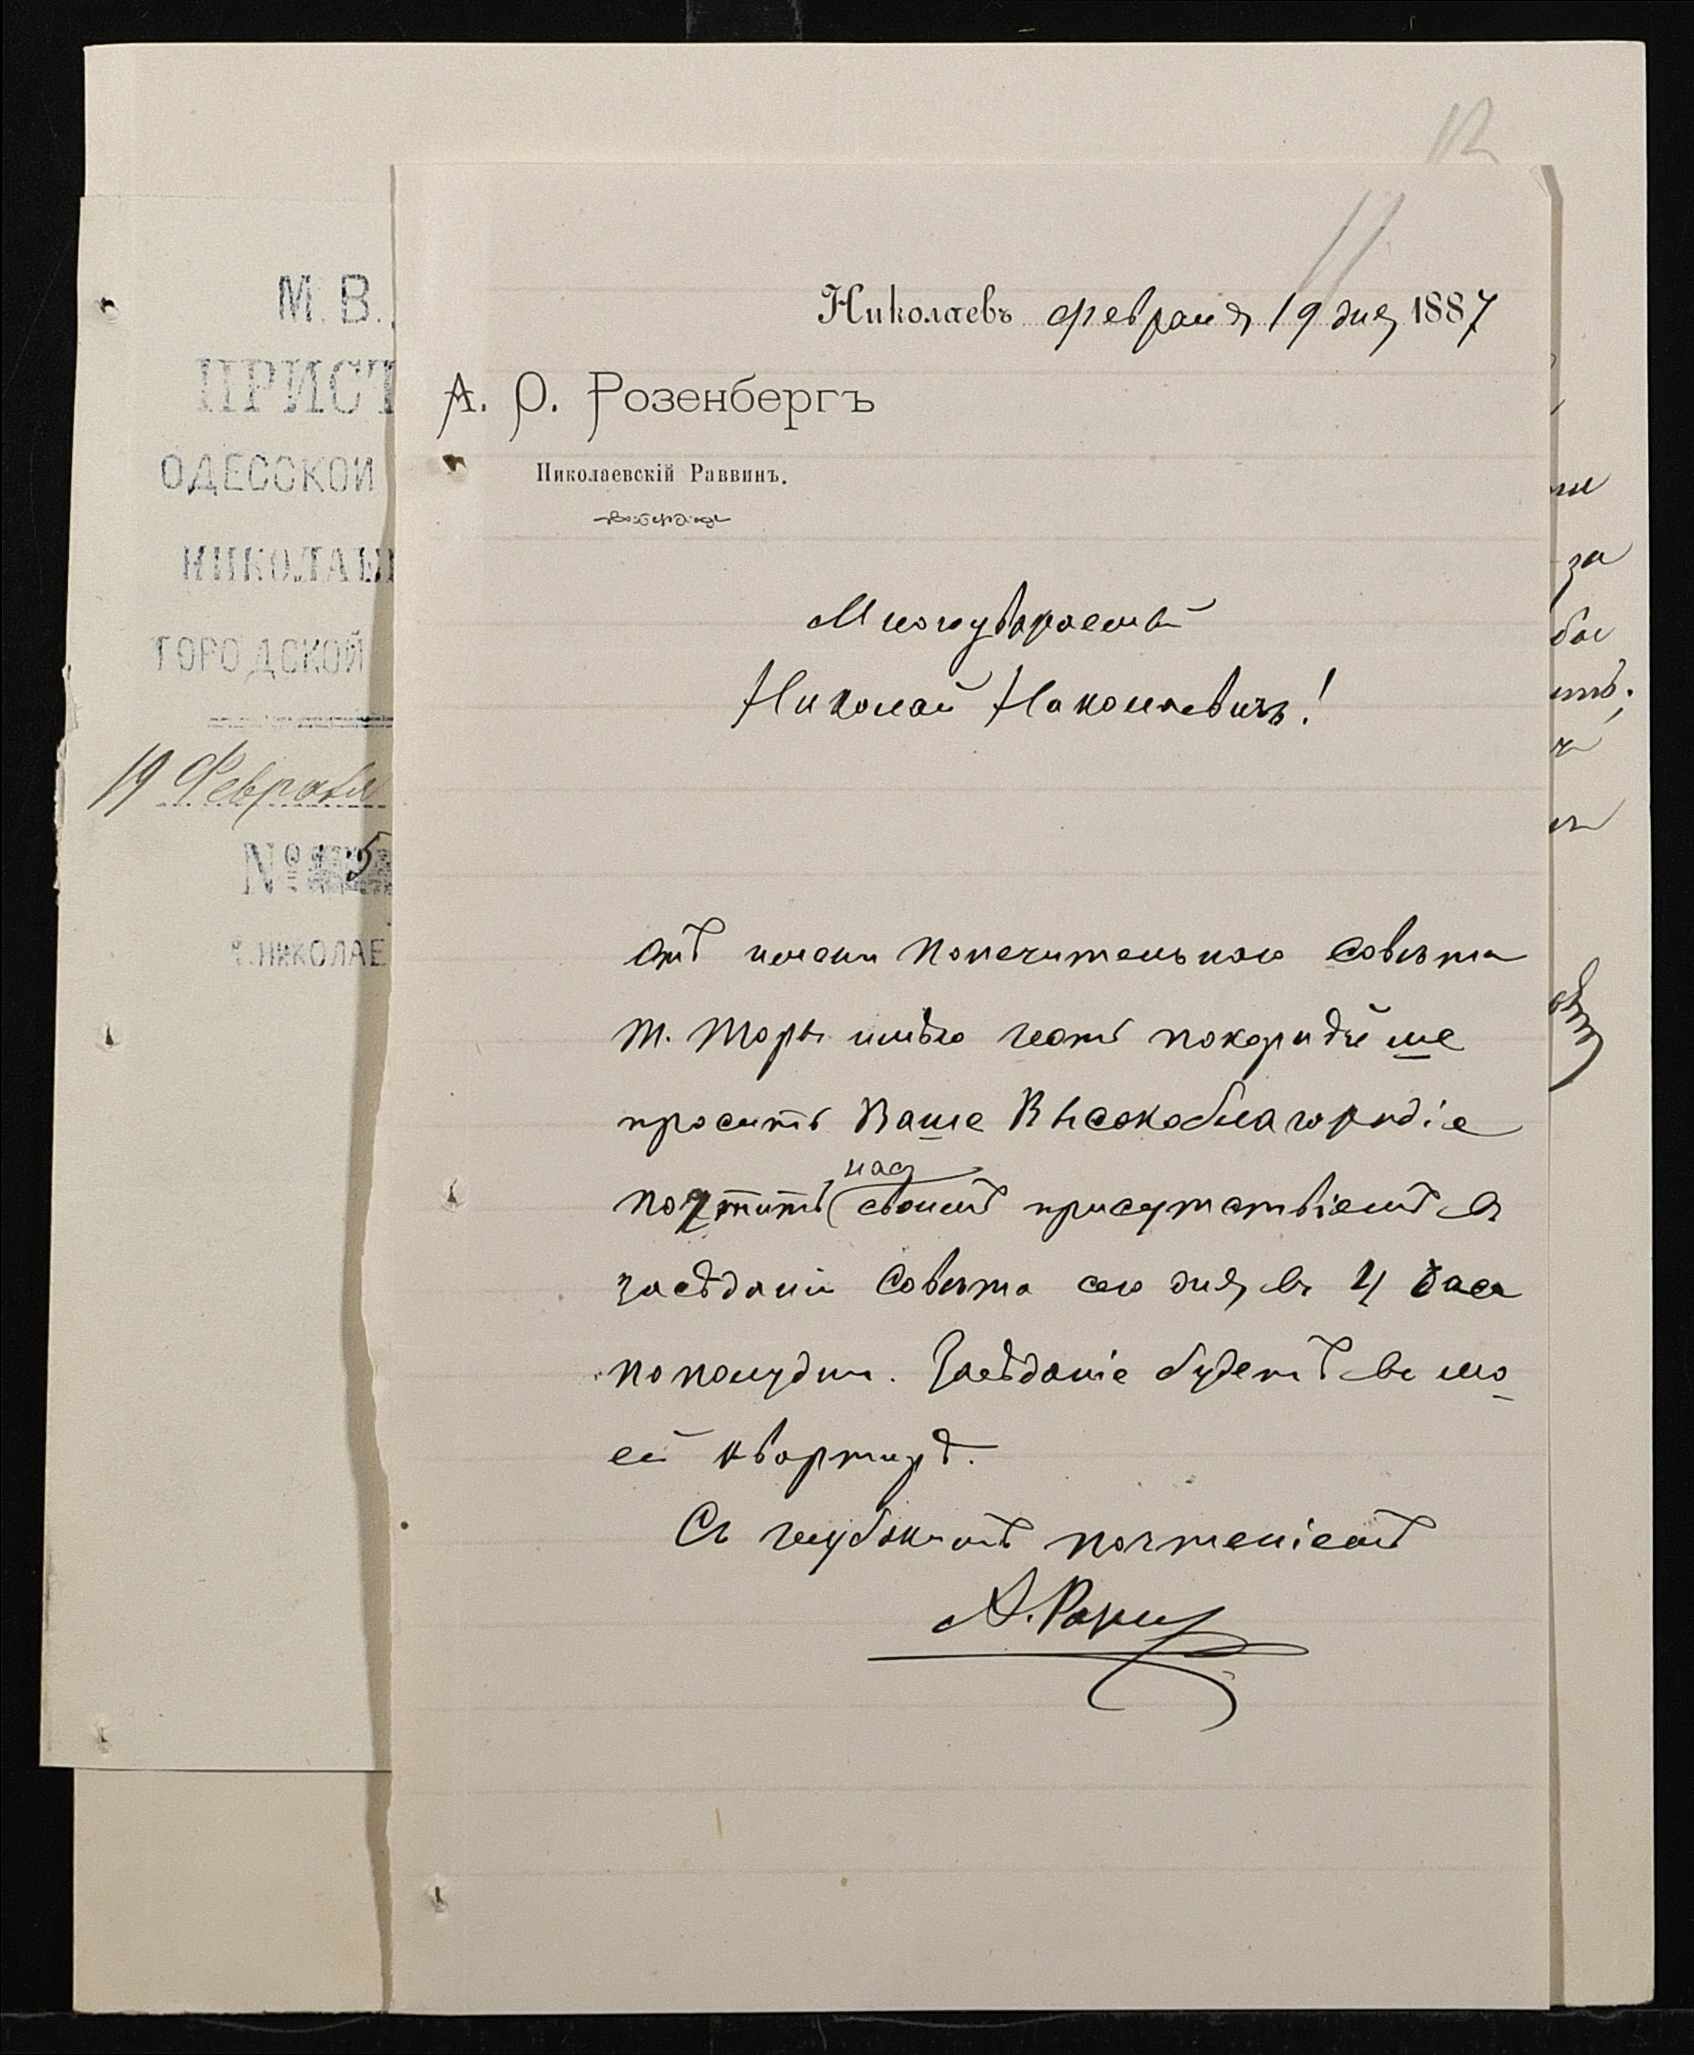 12
11
Николаевъ февраля 19 дня 1887
А. О. Розенбергъ
Николаевскій Раввинъ.
Многоуважаемый
Николай Николаевичъ!
Отъ имени Попечительнаго Совѣта
Т. Торы имѣю честь покорнѣйше
просить Ваше Высокоблагородіе
нас
почтить своимъ присутствіемъ въ
засѣданіи Совѣта сего дня въ 4 часа
пополудни. Засѣданіе будетъ въ мо-
ей квартирѣ.
Съ глубокимъ почтеніемъ
М. В.
ПРИСТ
ОДЕССКОЙ
НИКОЛАЕ
ГОРОДСКОЙ
19 Февраля
№ 5
г. НИКОЛАЕ
за